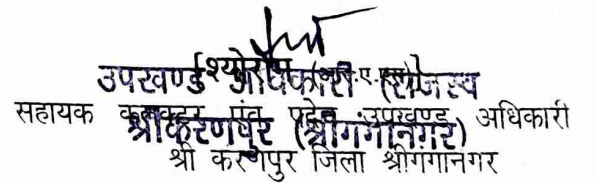 उपखण्ड अधिकारी (राजस्व
सहायक कलक्टर एंव पदेन उपखण्ड अधिकारी
श्रीकरणपुर (श्रीगंगानगर)
श्री करणपुर जिला श्रीगंगानगर